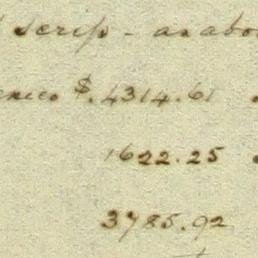 scrip - as abo
$.4314.61
1622.25
3785.92